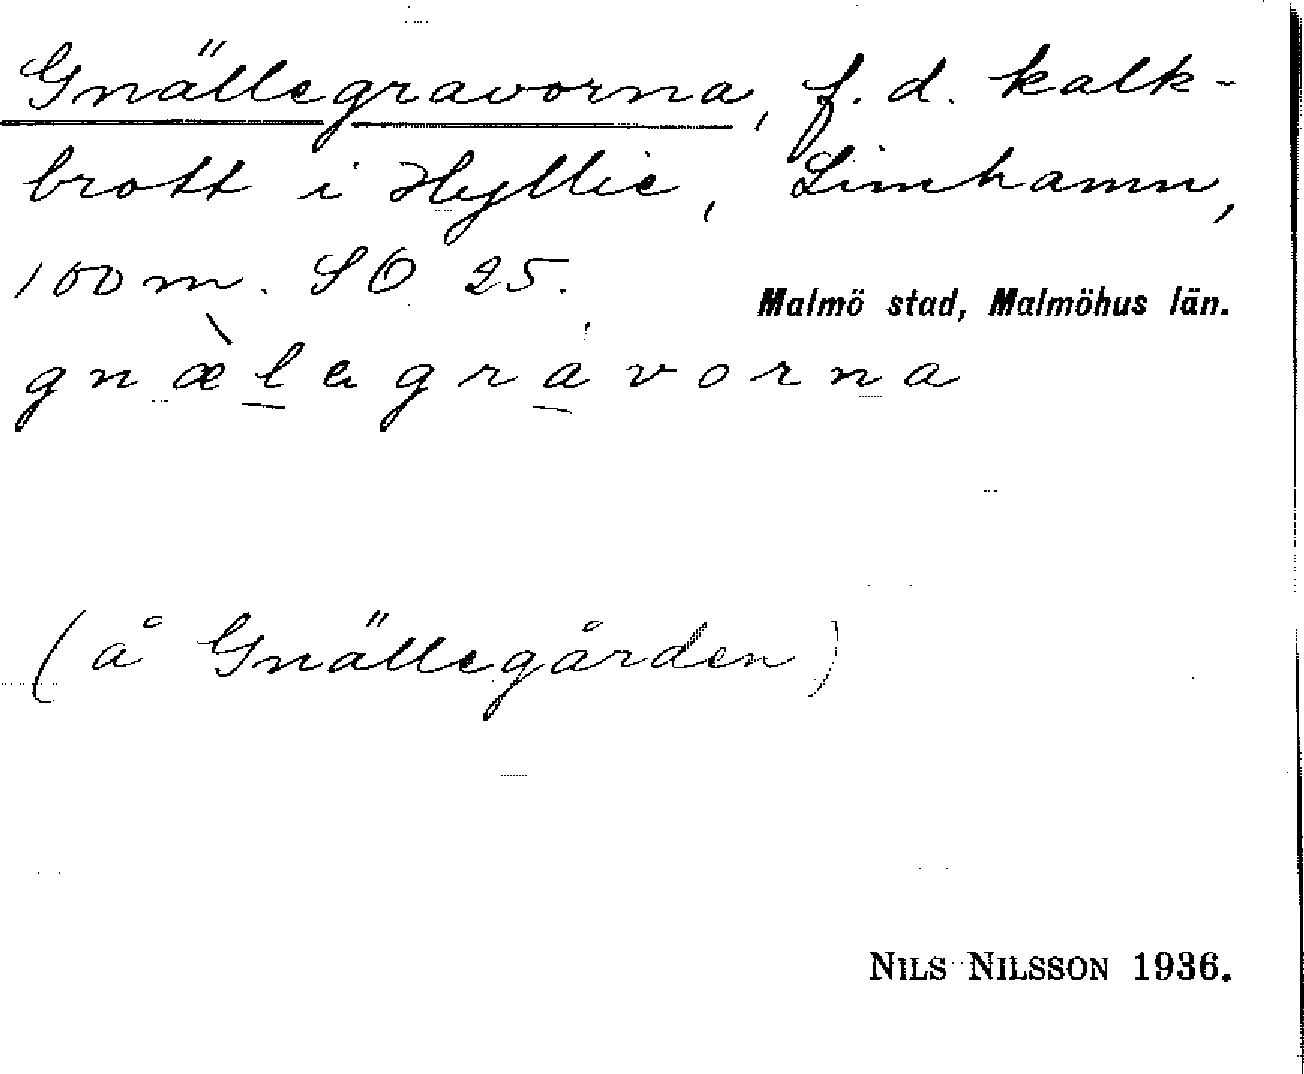 Gnällegravorna, f. d. kalk-
brott i Hyllie, Limhamn,
100 m. SO 25.
Malmö stad, Malmöhus län.
gnæ̀l̲egrá̲vorna
(å Gnällegården)
NILS NILSSON 1936.